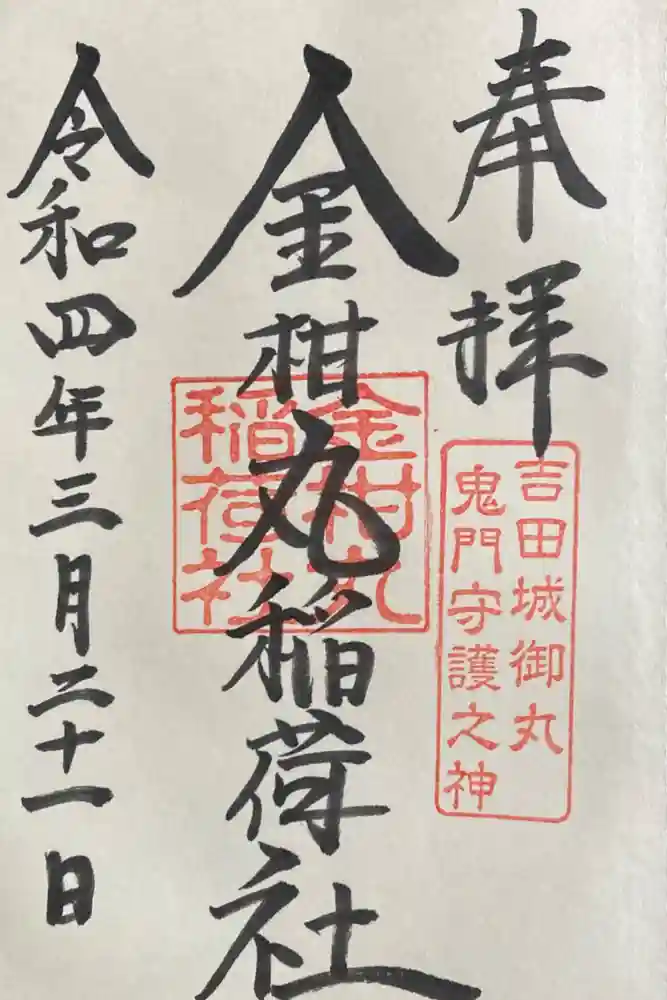 奉拝
吉田城御丸
鬼門守護之神
金柑丸稲荷社
金柑丸
稲荷社
令和四年三月二十一日